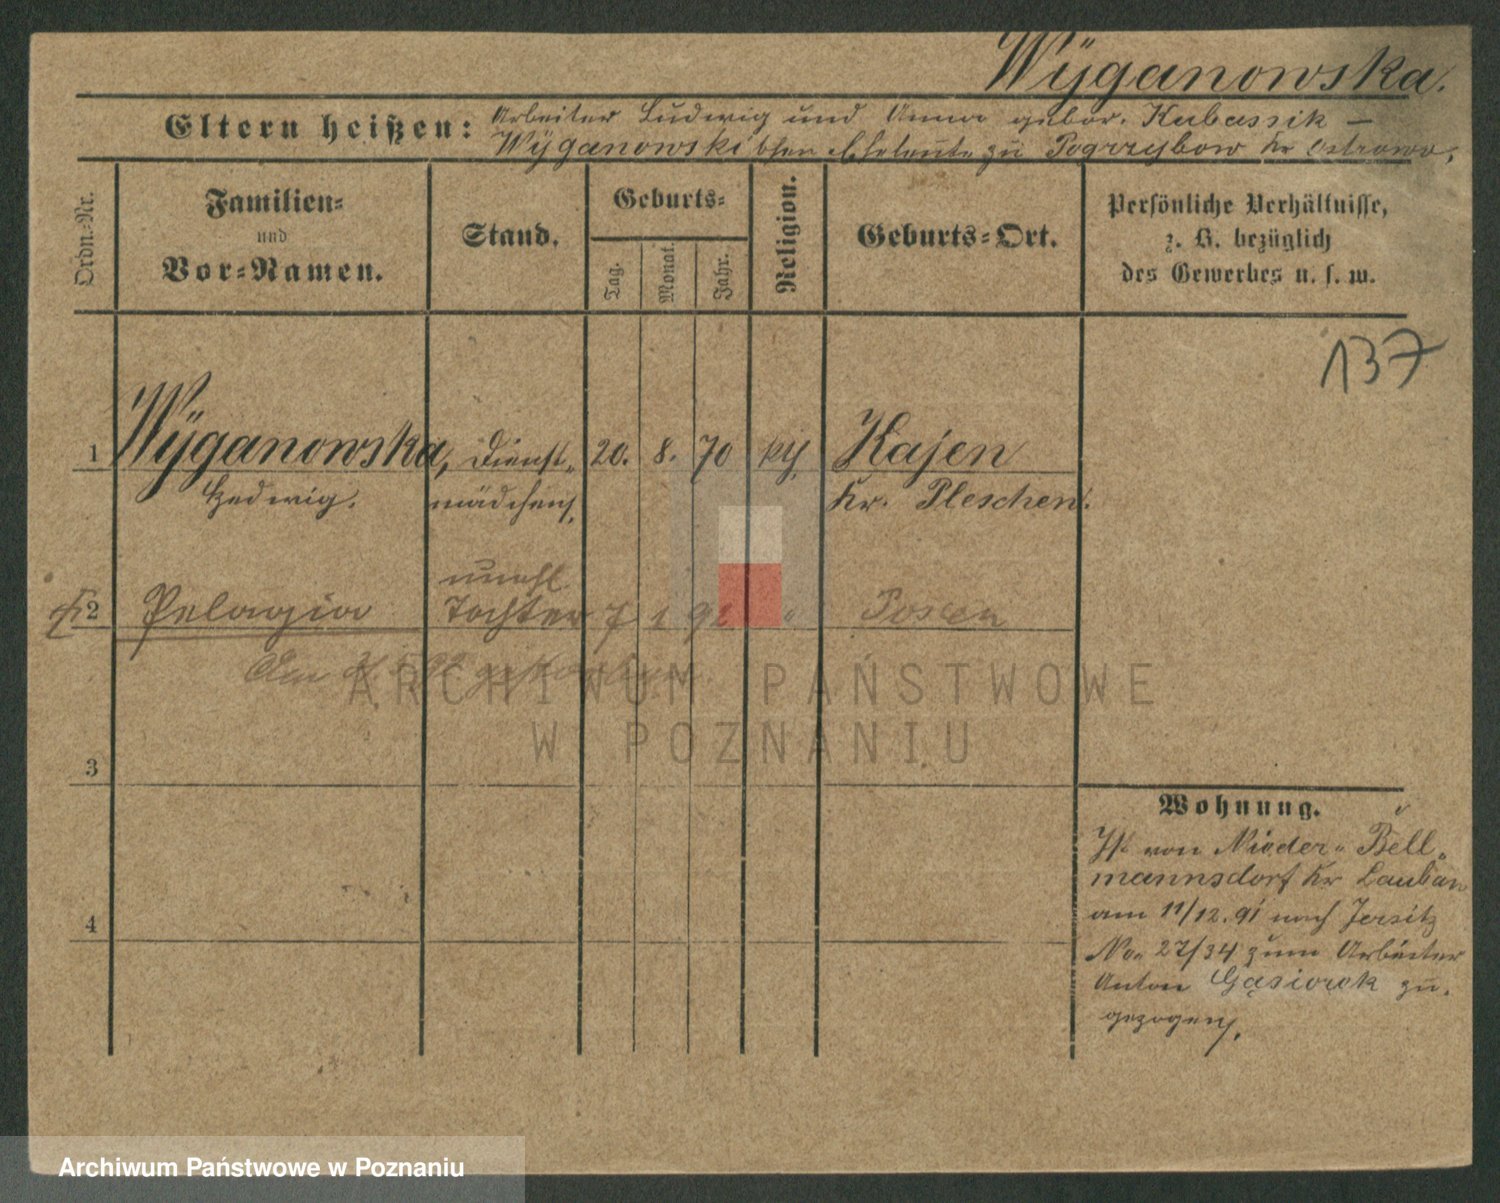 Wÿganowska.
Eltern heißen: Arbeiter Ludwig und Anna gebor. Kubassik –
Wÿganowski'schen Eheleute zu Pogrzybow Kr Ostrowo,
Ordn.-Nr.
Familien-
und
Vor-Namen.
Stand.
Geburts-
Tag.
Monat.
Jahr.
Religion.
Geburts-Ort.
Persönliche Verhältnisse,
z. B. bezüglich
des Gewerbes u. s. w.
137
1 Wÿganowska, Dienst- 20. 8. 70 Kajen
Hedwig. mädchen, Kr. Pleschen.
unehl
2 Pelagia Tochter 7 1 92 " Posen
Am
3
4
Wohnung.
Ist von Nieder-Bell-
mannsdorf Kr Lauban
am 11/12. 91 nach Jersitz
No. 27/34 zum Arbeiter
Anton Gąsiorek zu-
gezogen,
ARCHIWUM PAŃSTWOWE
W POZNANIU
Archiwum Państwowe w Poznaniu